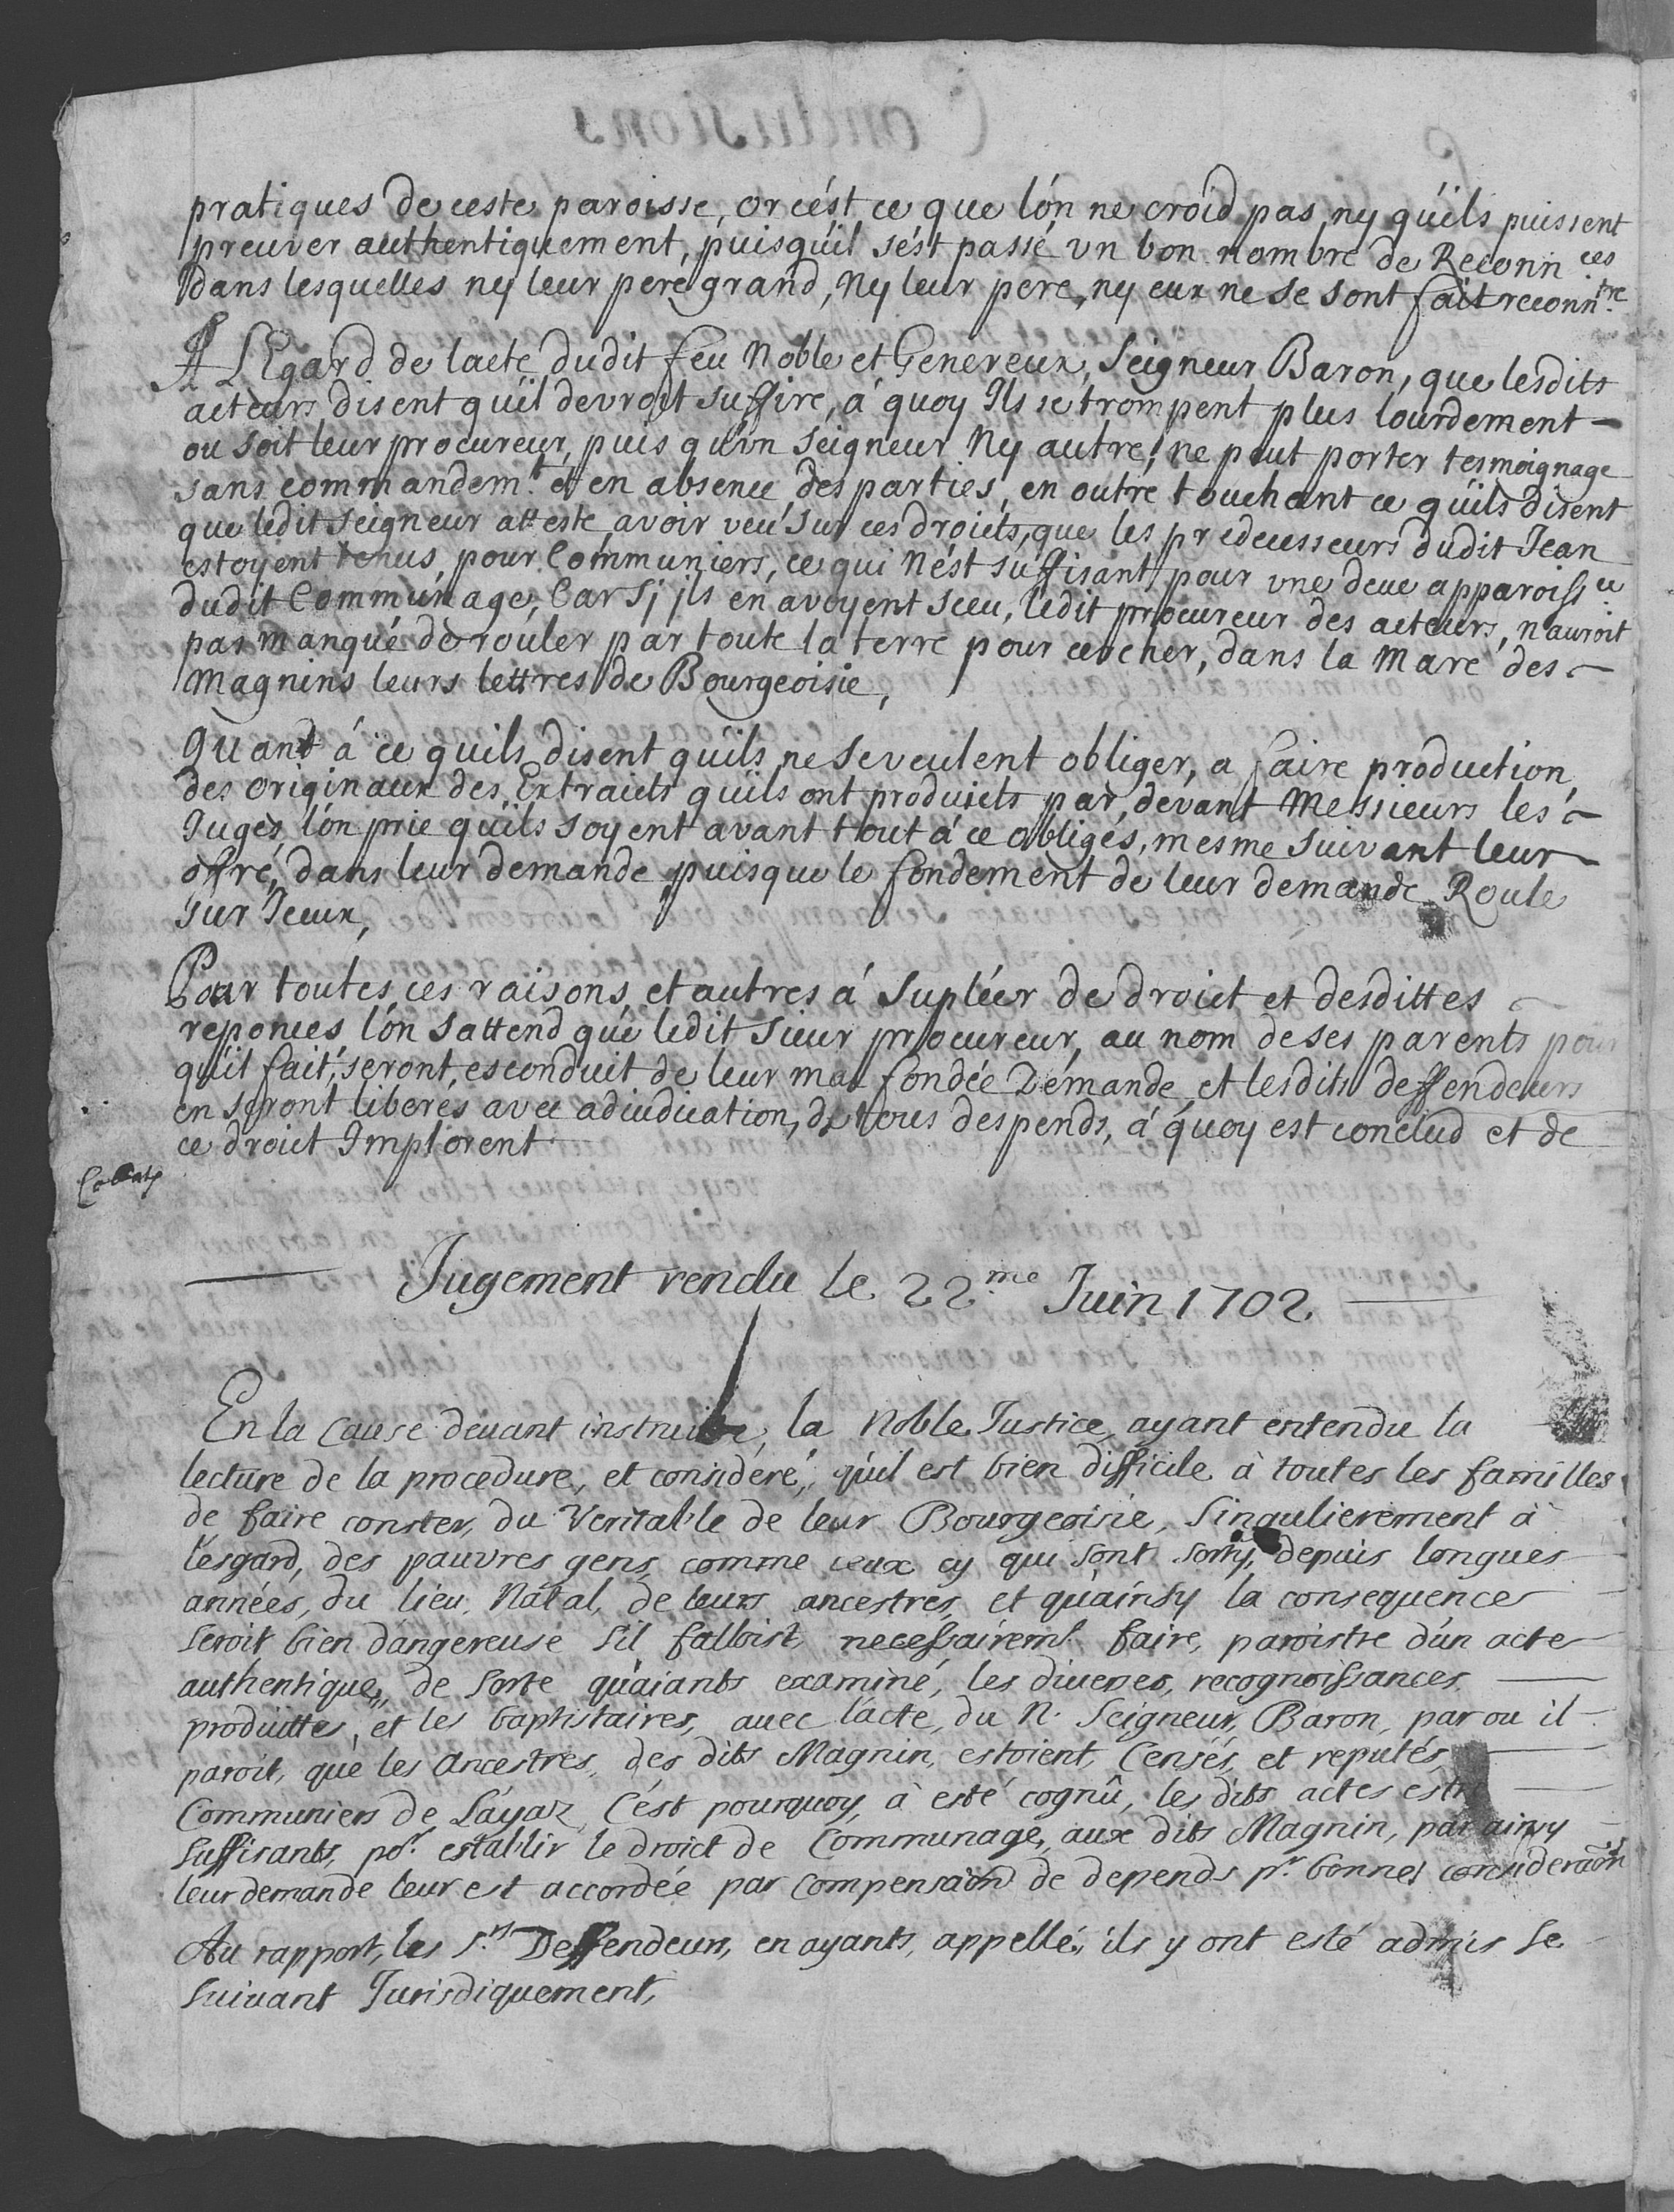 pratiques de ceste paroisse, or cést ce que lón ne croid pas, ny qúils puissent
preuver authentiquement, puisqúil sést passé vn bon nombre de Reconn.ces
dans lesquelles ny leur pere grand, Ny leur pere, ny eux ne se sont fait reconn.tre
A LEgard de lacte dudit feu Noble et Genereux, Seigneur Baron, que lesdits
acteurs disent qúil devroit suffire, á quoy Ils se trompent plus lourdement –
ou soit leur procureur, puis qúvn Seigneur Ny autre, ne peut porter tesmoignage
sans commandem.t et en absence des parties, en outre touchant ce qúils disent
que ledit Seigneur atteste avoir veú sur ces droicts, que les predecesseurs dudit Jean
estoyent tenus, pour Communiers, ce qui Nést suffisant pour vne deue apparoiss.ce
dudit Communage, Car Si jls en avoyent sceu, ledit procureur des acteurs, náuroit
pas manqué de rouler par toute la terre pour cercher, dans la Mare des –
Magnins leurs lettres de Bourgeoisie,
Quant á ce quils disent qúils ne se veulent obliger, a faire production,
des originaux des Extraicts qúils ont produicts par devant Messieurs les –
Juges, lón prie qúils soyent avant tout á ce obligés, mesme suivant leur –
offre, dans leur demande puisque le fondement de leur demande Roule
sur Iceux,
Pour toutes ces raisons et autres á Supléer de droict et desdittes –
reponces, lón sattend que ledit Sieur procureur, au nom de ses parents pour
qúil fait, seront, esconduit de leur mal fondée Demande et lesdits deffendeurs
en seront liberes avec adiudication, de tous despends, á quoy est conclud et de
ce droict Implorent
Jugement rendu le 22.me Juin 1702
En la cause devant instruitte, la Noble Justice, ayant entendu la
lecture de la procedure, et consideré, qúil est bien difficile à toutes les familles
de faire conster, du Veritable de leur Bourgeoisie, Singulierement à
lésgard, des pauvres gens, comme ceux cy qui sont sorty, depuis longues
années, du lieu, Natal, de leurs ancestres, et quáinsy la consequence
seroit bien dangereuse Sil falloist, necessairem.t faire, paroistre dún acte
authentique, de sorte quáiants examiné, les diverses, recognoissances
produitte, et les baptistaires, auec lácte, du N. Seigneur, Baron, par ou il
paroit, que les Ancestres, des dits Magnin, estoient, Censés, et reputés
Communiers de Láyaz, Cést pourquoy, à esté cognû, les dits actes estre
Suffisants, po.r establir le droict de Communage, aux dits Magnin, par ainsy
leur demande leur est accordée par compensaôn de depends p.r bonnes consideraôn
Au rapport, les S.rs Deffendeurs, en ayants, appellé, ils y ont esté admis se
suivant Jurisdiquement,